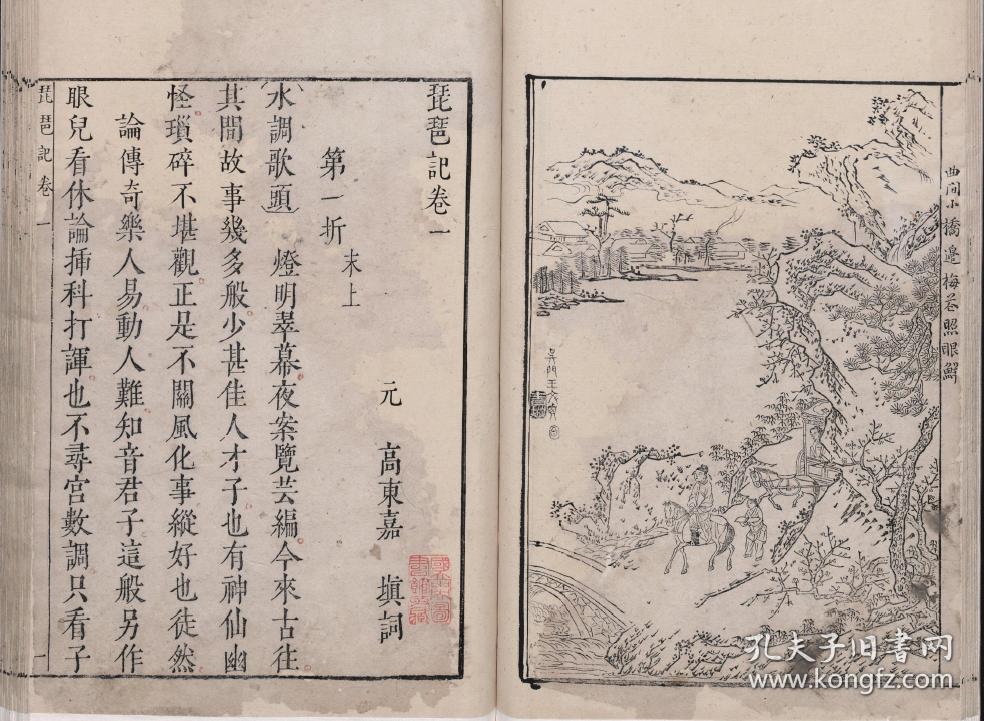 曲澗小橋邊梅花照眼鮮
吳門王文衡
琵琶記卷一
元 高東嘉 塡詞
第一折 末上
(水調歌頭) 燈明翠幕夜案覽芸編今來古往
其間故事幾多般少甚佳人才子也有神仙幽
怪瑣碎不堪觀正是不關風化事縱好也徒然
論傳奇樂人易動人難知音君子這般另作
眼兒看休論揷科打諢也不尋宮數調只看子
琵琶記卷一
一
孔夫子旧书网
www.kongfz.com